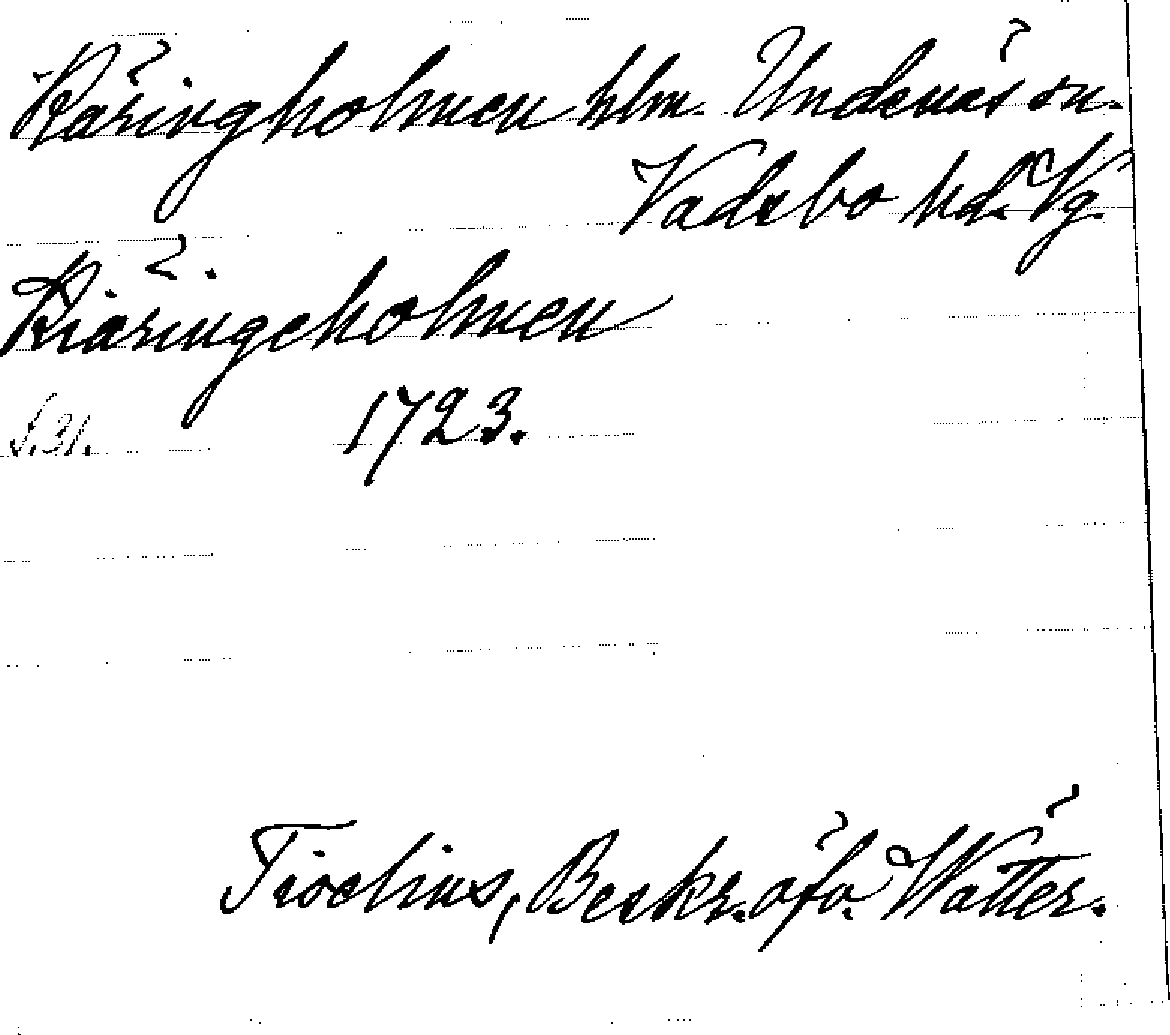 Käringholmen hlm. Undenäs sn.
Vadsbo hd. Vg.
Kiäringeholmen
S.31. 1723.
Tiselius, Beskr. öfv. Wätter.